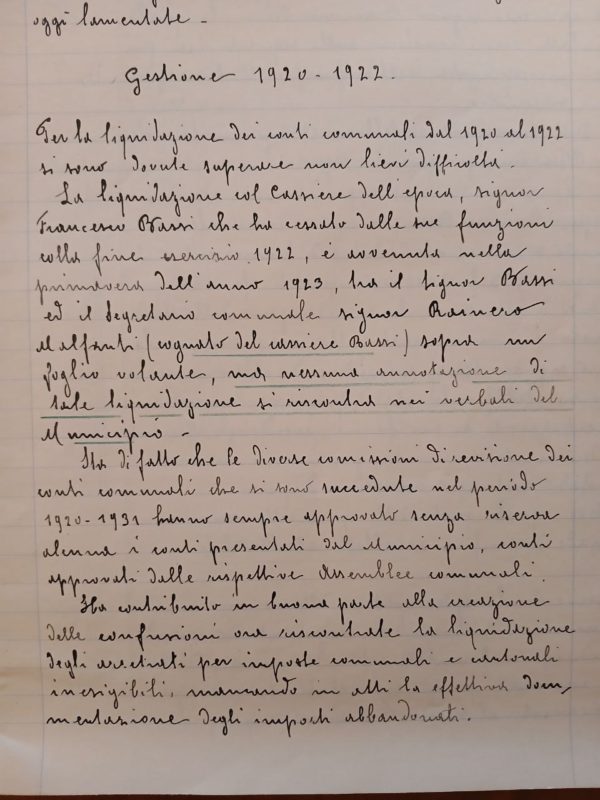 oggi lamentate -
Gestione 1920 - 1922.
Per la liquidazione dei conti comunali dal 1920 al 1922
si sono dovute superare non lievi difficoltà.
La liquidazione col Cassiere dell'epoca, signor
Francesco Bassi che ha cessato dalle sue funzioni
colla fine esercizio 1922, é avvenuta nella
primavera dell'anno 1923, tra il signor Bassi
ed il Segretario comunale signor Rainero
Malfanti (cognato del cassiere Bassi) sopra un
foglio volante, ma nessuna annotazione di
tale liquidazione si riscontra nei verbali del
Municipio -
Sta di fatto che le diverse comissioni di revisione dei
conti comunali che si sono succedute nel periodo
1920-1931 hanno sempre approvato senza riserva
alcuna i conti presentati dal Municipio, conti
approvati dalle rispettive Assemblee comunali.
Ha contribuito in buona parte alla creazione
delle confusioni ora riscontrate la liquidazione
degli arretrati per imposte comunali e cantonali
inesigibili, mancando in atti la effettiva docu,
mentazione degli importi abbandonati.